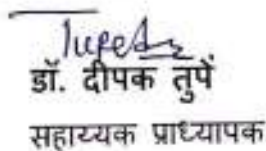 Tupe
डॉ. दीपक तुपें
सहाय्यक प्राध्यापक